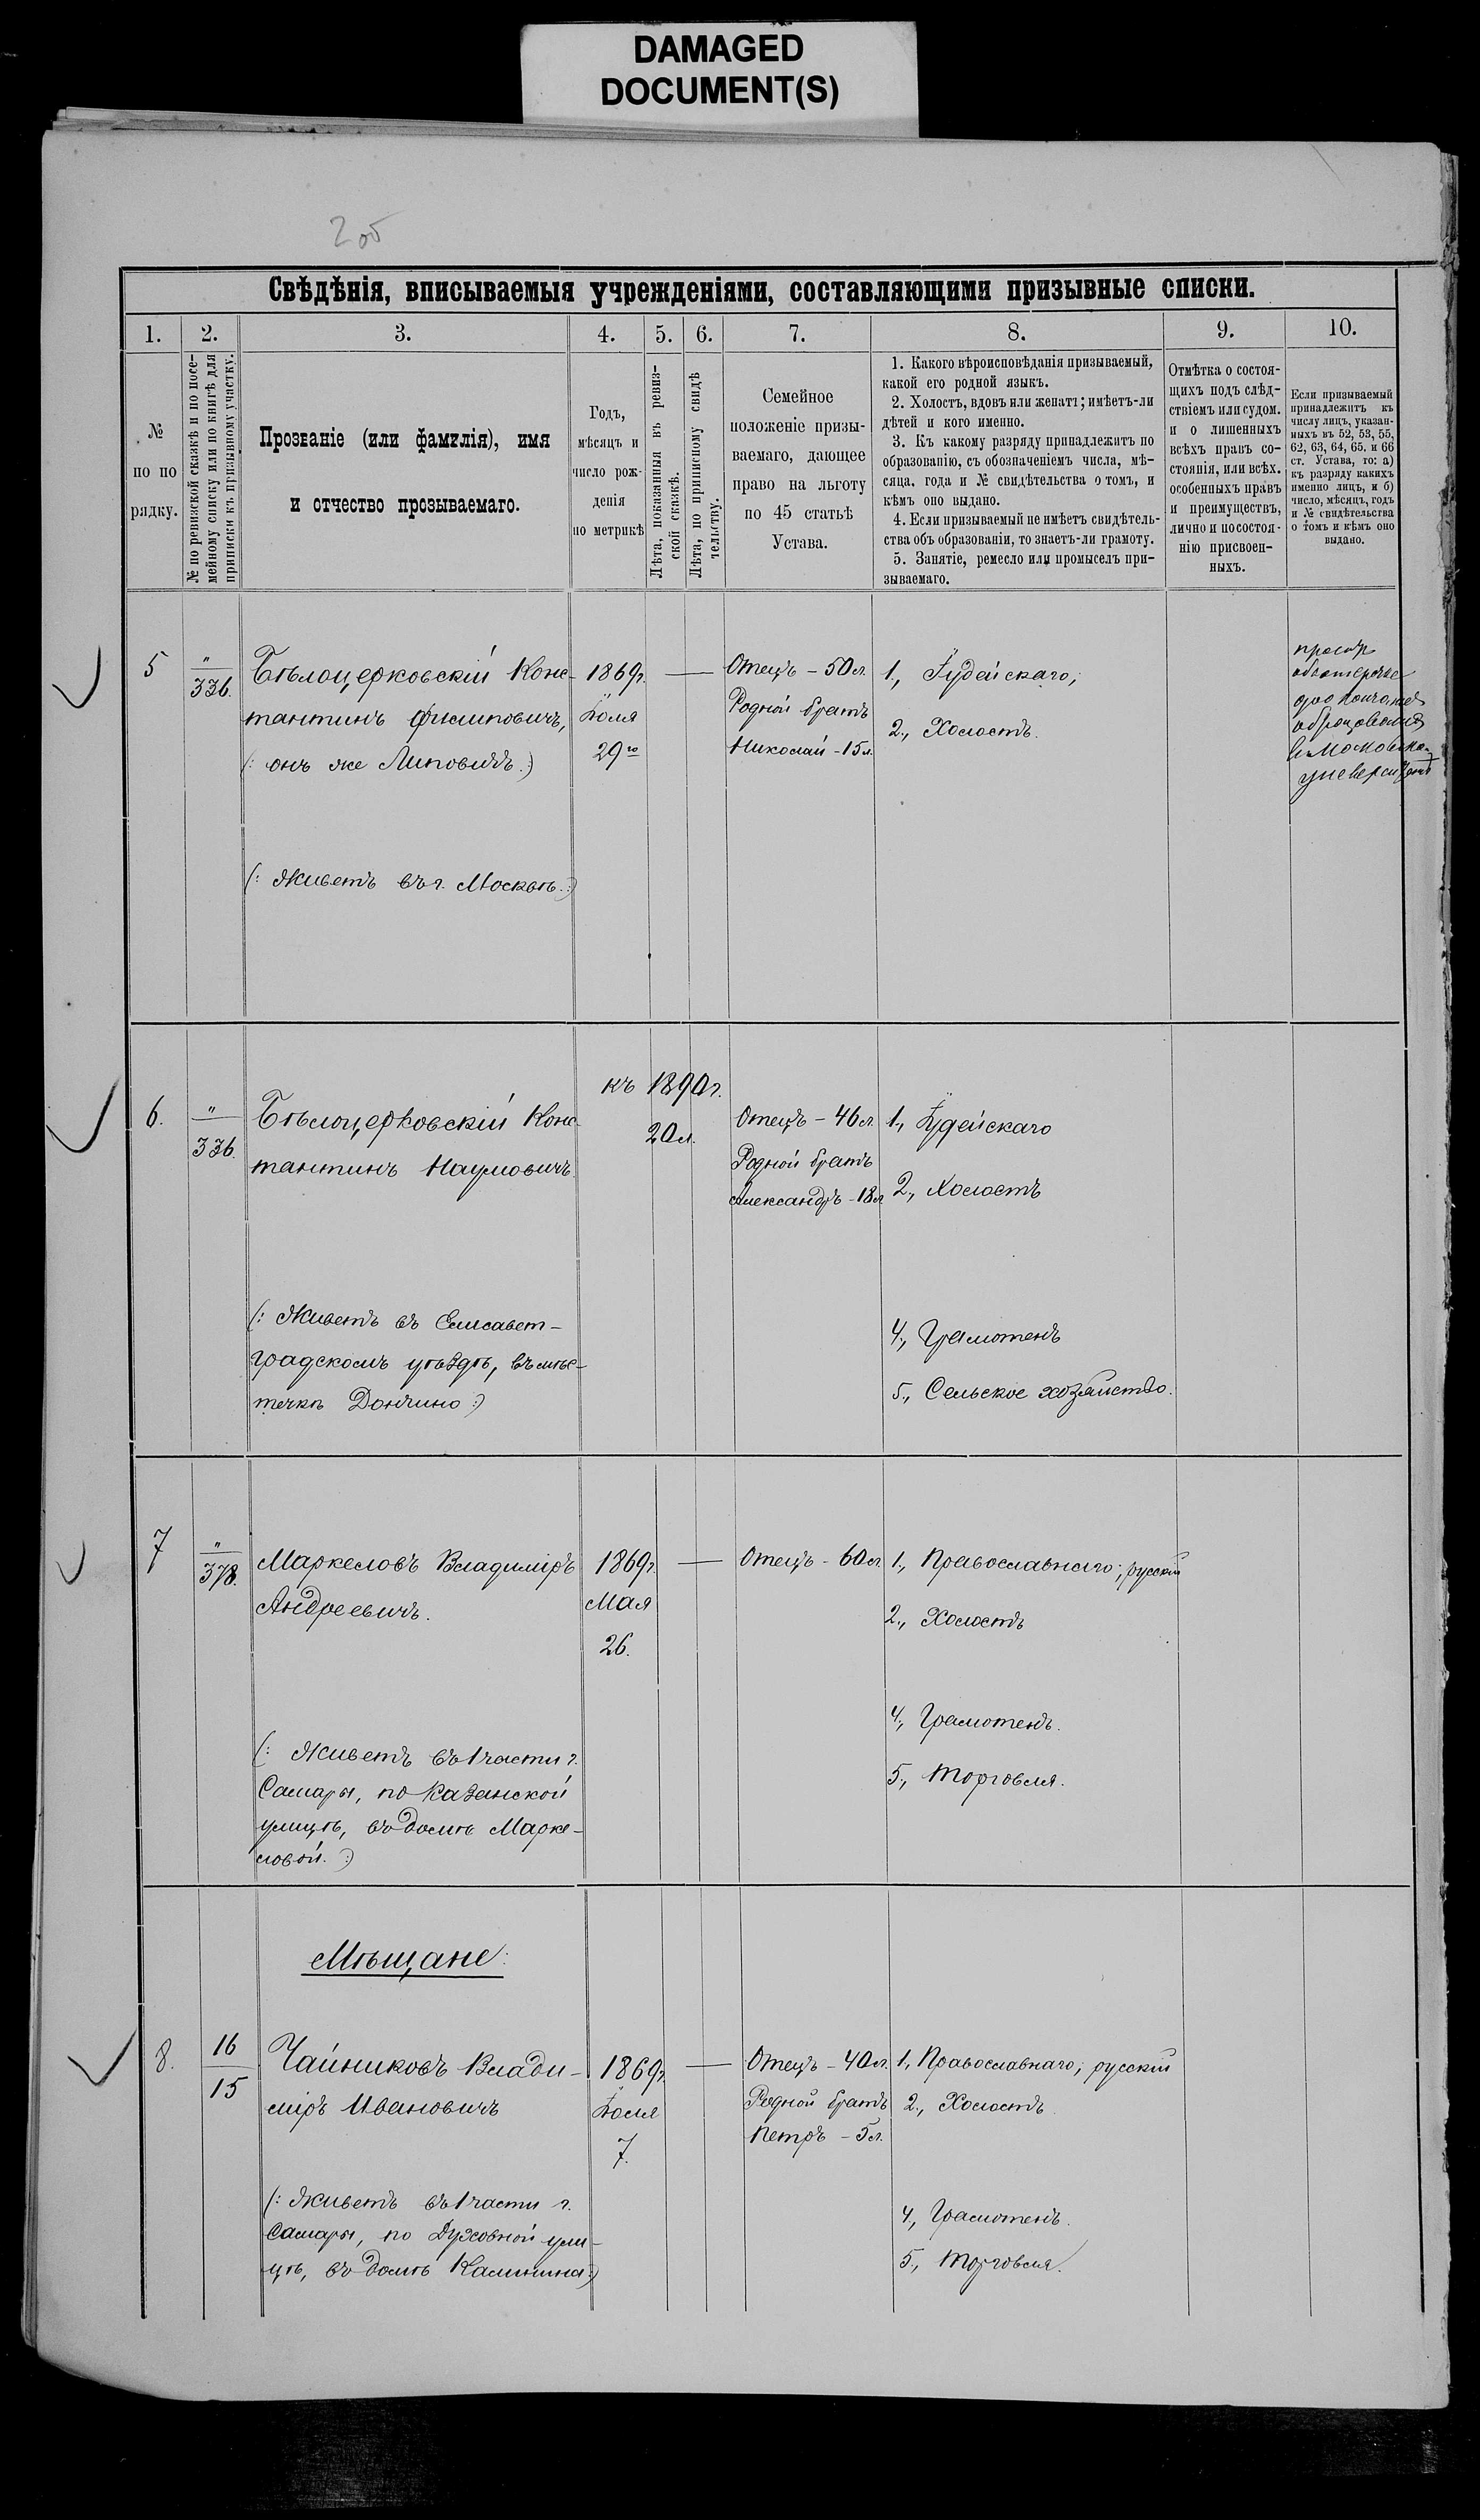 DAMAGED
DOCUMENT(S)
2 об
Свѣдѣнія, вписываемыя учрежденіями, составляющими призывные списки.
1. 2. 3. 4. 5. 6. 7. 8. 9. 10.
№
по по
рядку.
№ по ревизской сказкѣ и по посе-
мейному списку или по книгѣ для
приписки къ призывному участку.
Прозваніе (или фамилія), имя
и отчество прозываемаго.
Годъ,
мѣсяцъ и
число рож-
денія
по метрикѣ
Лѣта, показанныя въ ревиз-
ской сказкѣ.
Лѣта, по приписному свидѣ
тельству.
Семейное
положеніе призы-
ваемаго, дающее
право на льготу
по 45 статьѣ
Устава.
1. Какого вѣроисповѣданія призываемый,
какой его родной языкъ.
2. Холостъ, вдовъ или женатъ; имѣетъ-ли
дѣтей и кого именно.
3. Къ какому разряду принадлежитъ по
образованію, съ обозначеніемъ числа, мѣ-
сяца, года и № свидѣтельства о томъ, и
кѣмъ оно выдано.
4. Если призываемый не имѣетъ свидѣтель-
ства объ образованіи, то знаетъ-ли грамоту.
5. Занятіе, ремесло или промыселъ при-
зываемаго.
Отмѣтка о состоя-
щихъ подъ слѣд-
ствіемъ или судом.
и о лишенныхъ
всѣхъ правъ со-
стоянія, или всѣх.
особенныхъ правъ
и преимуществъ,
лично и по состоя-
нію присвоен-
ныхъ.
Если призываемый
принадлежитъ къ
числу лицъ, указан-
ныхъ въ 52, 53, 55,
62, 63, 64, 65. и 66
ст. Устава, то: а)
къ разряду какихъ
именно лицъ, и б)
число, мѣсяцъ, годъ
и № свидѣтельства
о томъ и кѣмъ оно
выдано.
5
"
336.
Бѣлоцерковскій Конс-
тантинъ Филиповичъ,
(: онъ же Липовичъ :)
(: Живетъ въ г. Москвѣ. :)
1869г.
Іюля
29го
Отецъ - 50 л.
Родной братъ
Николай - 15 л.
1, Іудейскаго;
2, Холостъ.
образованія
6.
"
336.
Бѣлоцерковскій Конс-
тантинъ Наумовичъ
(: Живетъ въ Елисавет-
градскомъ уѣздѣ, въ мѣс-
течкѣ Дончино :)
къ 1890г.
20 л.
Отецъ - 46 л.
Родной братъ
Александръ - 18 л
1, Іудейскаго
2, Холостъ
4, Грамотенъ
5, Сельское хозяйство.
7
"
378.
Маркеловъ Владиміръ
Андреевичъ.
(: Живетъ въ 1 части г.
Самары, по Казанской
улицѣ, въ домѣ Марке-
ловой. :)
1869г.
Мая
26.
Отецъ - 60 л.
1, Православнаго; русскій
2, Холостъ
4, Грамотенъ.
5, Торговля.
Мѣщане:
8.
16
15
Чайниковъ Влади-
міръ Ивановичъ
(: Живетъ въ 1 части г.
Самары, по Духовной ули-
цѣ, въ домѣ Калинина :)
1869г.
Іюля
7.
Отецъ - 40 л.
Родной братъ
Петръ - 5 л.
1, Православнаго; русскій
2, Холостъ
4, Грамотенъ.
5, Торговля.